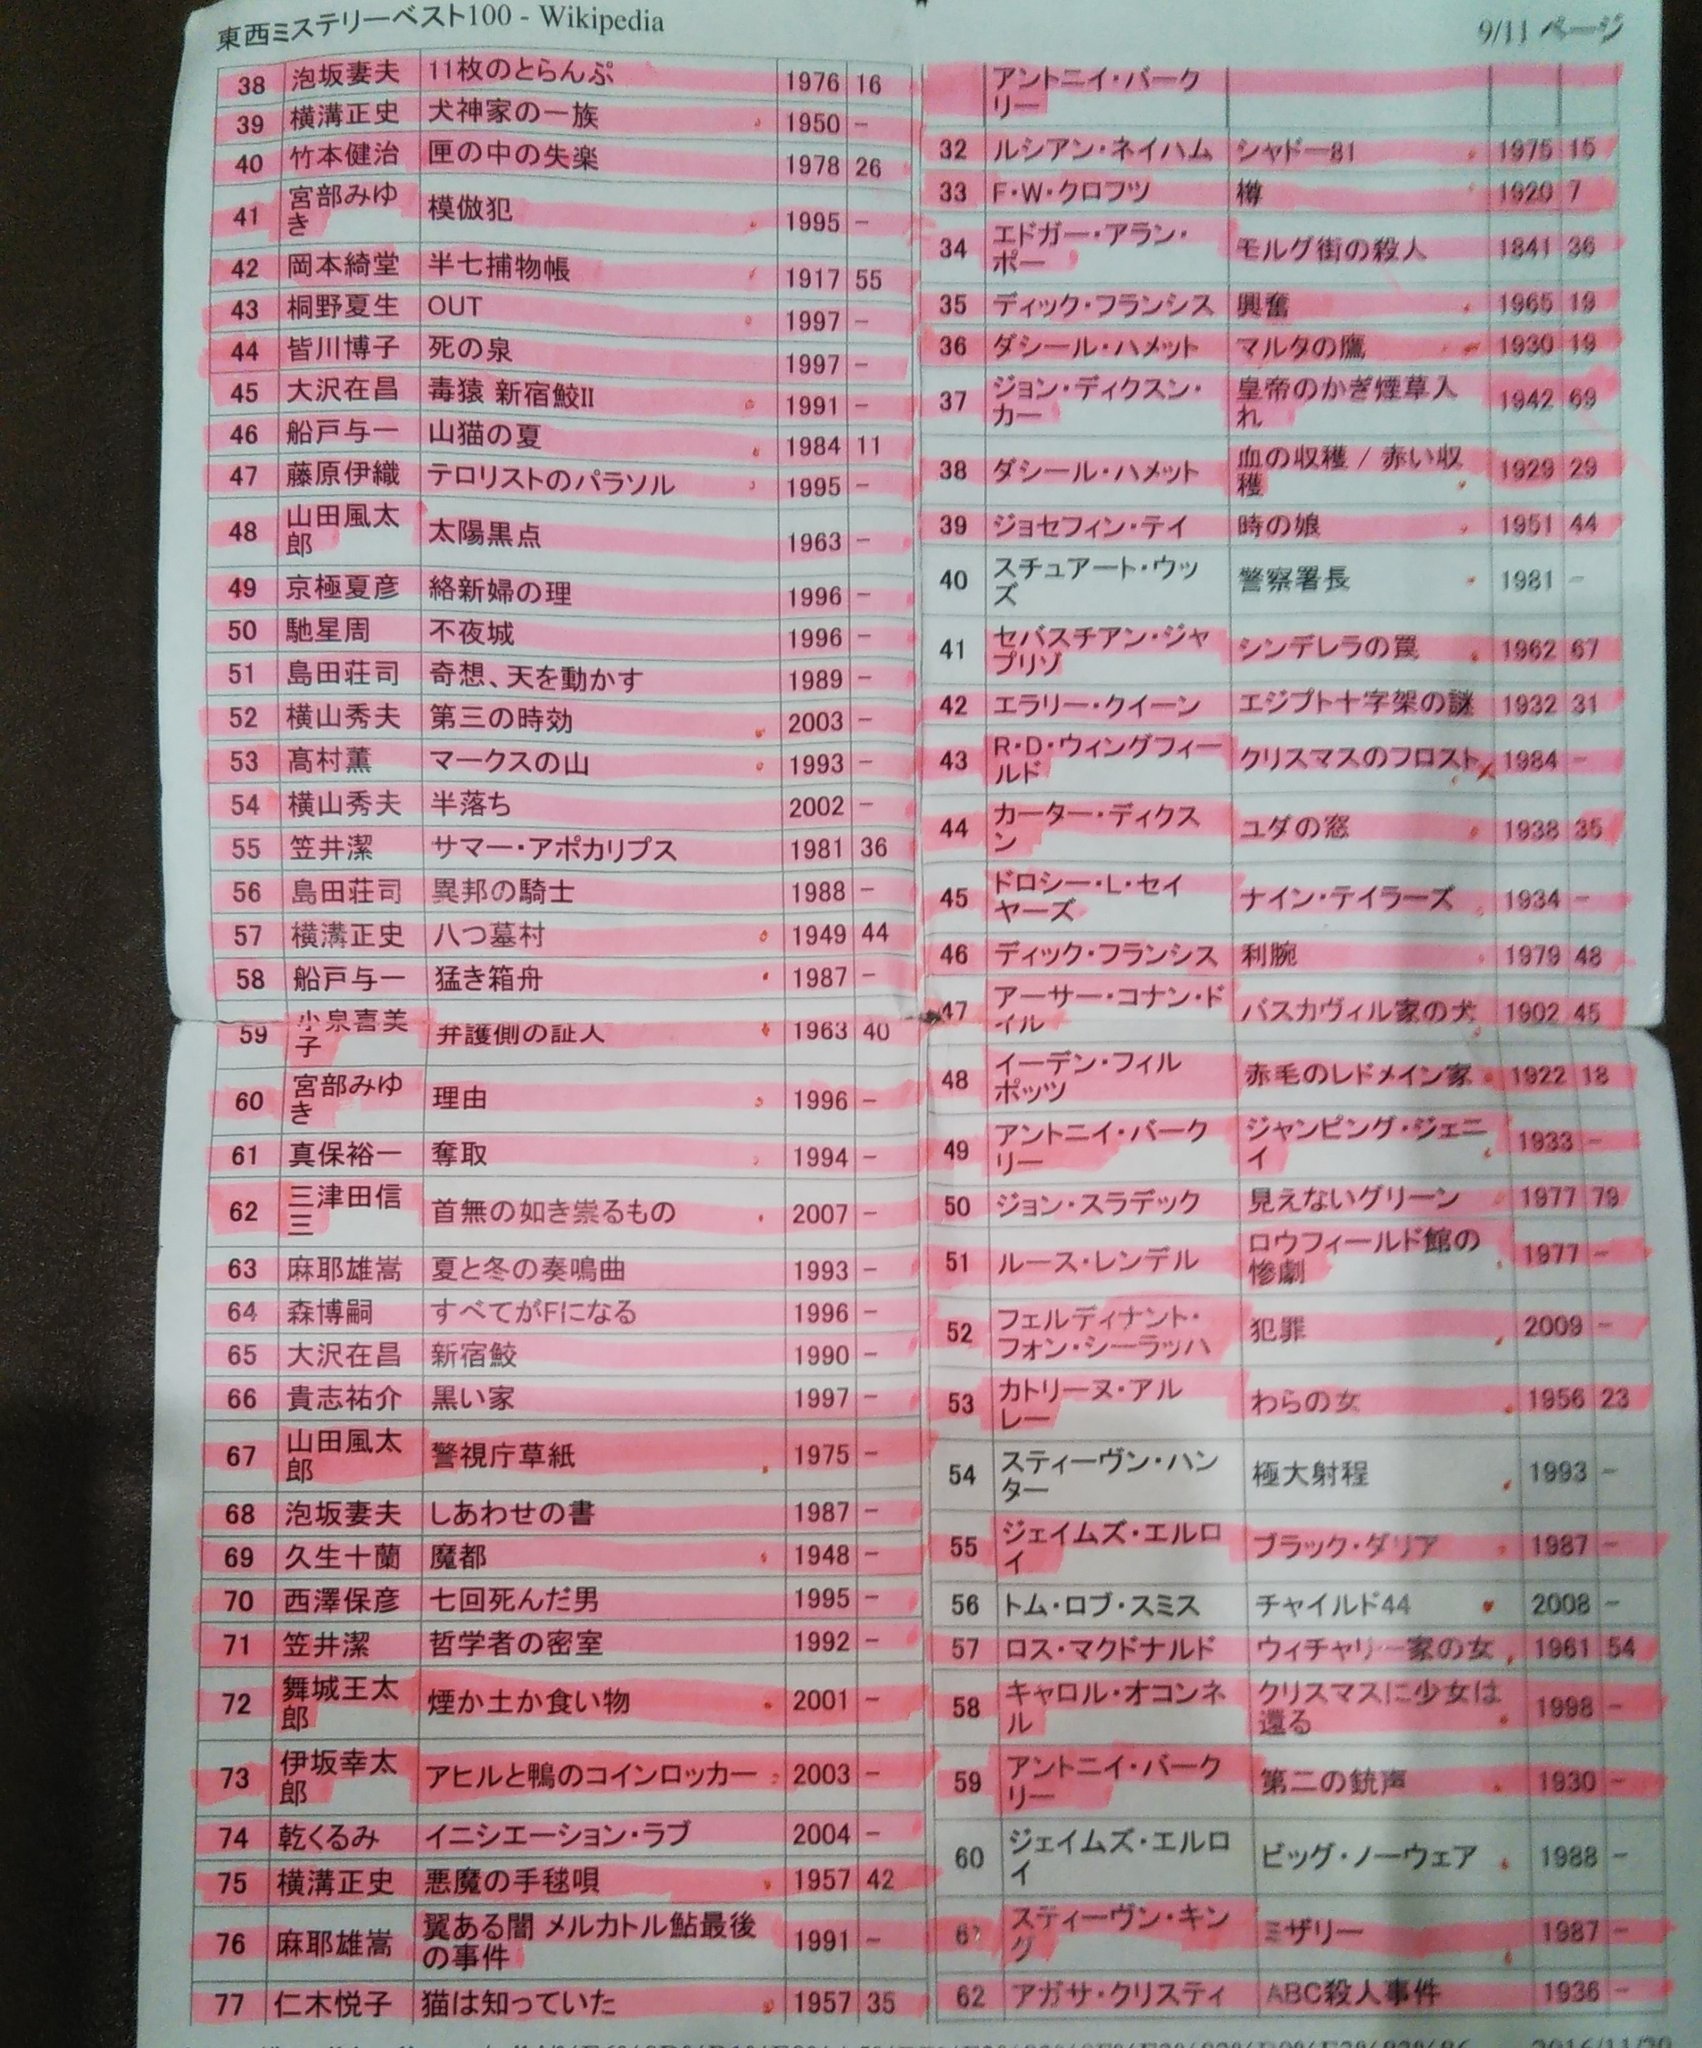 東西ミステリーベスト100 - Wikipedia
9/11 ページ
38 泡坂妻夫 11枚のとらんぷ 1976 16
39 横溝正史 犬神家の一族 1950 -
40 竹本健治 匣の中の失楽 1978 26
41 宮部みゆ
き 模倣犯 1995 -
42 岡本綺堂 半七捕物帳 1917 55
43 桐野夏生 OUT 1997 -
44 皆川博子 死の泉 1997 -
45 大沢在昌 毒猿 新宿鮫II 1991 -
46 船戸与一 山猫の夏 1984 11
47 藤原伊織 テロリストのパラソル 1995 -
48 山田風太
郎 太陽黒点 1963 -
49 京極夏彦 絡新婦の理 1996 -
50 馳星周 不夜城 1996 -
51 島田荘司 奇想、天を動かす 1989 -
52 横山秀夫 第三の時効 2003 -
53 髙村薫 マークスの山 1993 -
54 横山秀夫 半落ち 2002 -
55 笠井潔 サマー・アポカリプス 1981 36
56 島田荘司 異邦の騎士 1988 -
57 横溝正史 八つ墓村 1949 44
58 船戸与一 猛き箱舟 1987 -
59 小泉喜美
子 弁護側の証人 1963 40
60 宮部みゆ
き 理由 1996 -
61 真保裕一 奪取 1994 -
62 三津田信
三 首無の如き祟るもの 2007 -
63 麻耶雄嵩 夏と冬の奏鳴曲 1993 -
64 森博嗣 すべてがFになる 1996 -
65 大沢在昌 新宿鮫 1990 -
66 貴志祐介 黒い家 1997 -
67 山田風太
郎 警視庁草紙 1975 -
68 泡坂妻夫 しあわせの書 1987 -
69 久生十蘭 魔都 1948 -
70 西澤保彦 七回死んだ男 1995 -
71 笠井潔 哲学者の密室 1992 -
72 舞城王太
郎 煙か土か食い物 2001 -
73 伊坂幸太
郎 アヒルと鴨のコインロッカー 2003 -
74 乾くるみ イニシエーション・ラブ 2004 -
75 横溝正史 悪魔の手毬唄 1957 42
76 麻耶雄嵩 翼ある闇 メルカトル鮎最後
の事件 1991 -
77 仁木悦子 猫は知っていた 1957 35
アントニイ・バーク
リー
32 ルシアン・ネイハム シャドー81 1975 15
33 F・W・クロフツ 樽 1920 7
34 エドガー・アラン・
ポー モルグ街の殺人 1841 36
35 ディック・フランシス 興奮 1965 19
36 ダシール・ハメット マルタの鷹 1930 19
37 ジョン・ディクスン・
カー 皇帝のかぎ煙草入
れ 1942 69
38 ダシール・ハメット 血の収穫 / 赤い収
穫 1929 29
39 ジョセフィン・テイ 時の娘 1951 44
40 スチュアート・ウッ
ズ 警察署長 1981 -
41 セバスチアン・ジャ
プリゾ シンデレラの罠 1962 67
42 エラリー・クイーン エジプト十字架の謎 1932 31
43 R・D・ウィングフィー
ルド クリスマスのフロスト 1984 -
44 カーター・ディクス
ン ユダの窓 1938 35
45 ドロシー・L・セイ
ヤーズ ナイン・テイラーズ 1934 -
46 ディック・フランシス 利腕 1979 48
47 アーサー・コナン・ド
イル バスカヴィル家の犬 1902 45
48 イーデン・フィル
ポッツ 赤毛のレドメイン家 1922 18
49 アントニイ・バーク
リー ジャンピング・ジェニ
イ 1933 -
50 ジョン・スラデック 見えないグリーン 1977 79
51 ルース・レンデル ロウフィールド館の
惨劇 1977 -
52 フェルディナント・
フォン・シーラッハ 犯罪 2009 -
53 カトリーヌ・アル
レー わらの女 1956 23
54 スティーヴン・ハン
ター 極大射程 1993 -
55 ジェイムズ・エルロ
イ ブラック・ダリア 1987 -
56 トム・ロブ・スミス チャイルド44 2008 -
57 ロス・マクドナルド ウィチャリー家の女 1961 54
58 キャロル・オコンネ
ル クリスマスに少女は
還る 1998 -
59 アントニイ・バーク
リー 第二の銃声 1930 -
60 ジェイムズ・エルロ
イ ビッグ・ノーウェア 1988 -
61 スティーヴン・キン
グ ミザリー 1987 -
62 アガサ・クリスティ ABC殺人事件 1936 -